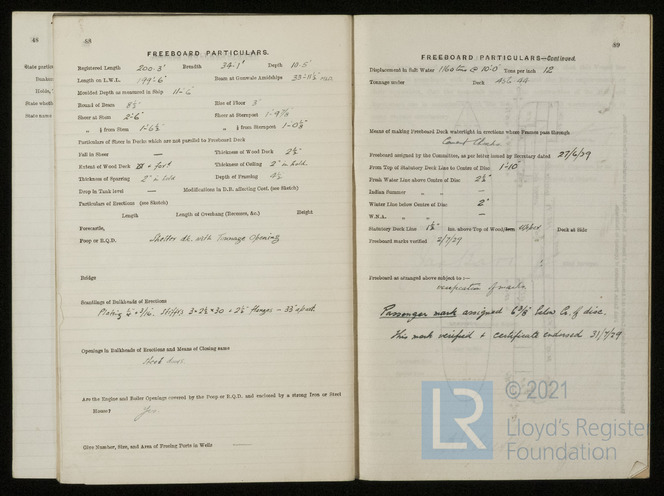 48
State
88
FREEBOARD PARTICULARS.
Registered Length 200·3' Breadth 34·1' Depth 10·5'
Length on L.W.L. 199'-6" Beam at Gunwale Amidships
Moulded Depth as measured in Ship 11-6
Round of Beam 8½ Rise of Floor 3"
Sheer at Stem 2-6" Sheer at Sternpost
„ ⅛ from Stem „ ⅛ from Sternpost
Particulars of Sheer in Decks which are not parallel to Freeboard Deck
Fall in Sheer — Thickness of Wood Deck 2½"
Extent of Wood Deck Thickness of Ceiling 2" in hold
Thickness of Sparring 2" in hold Depth of Framing
Drop in Tank level — Modifications in D.B. affecting Coef. (see Sketch)
Particulars of Erections (see Sketch)
Length Length of Overhang (Recesses, &c.) Height
Forecastle,
Poop or R.Q.D. Shelter dk. with Tonnage Opening
Bridge
Scantlings of Bulkheads of Erections
Plating
Openings in Bulkheads of Erections and Means of Closing same
Are the Engine and Boiler Openings covered by the Poop or R.Q.D. and enclosed by a strong Iron or Steel
House? Yes.
Give Number, Size, and Area of Freeing Ports in Wells
89
FREEBOARD PARTICULARS—Continued.
Displacement in Salt Water @ 10'0" Tons per inch 12
Tonnage under Deck 456.44
Means of making Freeboard Deck watertight in erections where Frames pass through
Cement Chocks
Freeboard assigned by the Committee, as per letter issued by Secretary dated 27/6/29
From Top of Statutory Deck Line to Centre of Disc 1'-10"
Fresh Water Line above Centre of Disc 2½"
Indian Summer „ „ —
Winter Line below Centre of Disc 2"
W.N.A. „ „ —
Statutory Deck Line 1½" ins. above Top of Wood upper Deck at Side
Freeboard marks verified 2/7/29
Freeboard as arranged above subject to :—
verification of marks.
Passenger mark assigned 6⅜" below C. of disc.
This mark verified & certificate endorsed 31/7/29
© 2021
LR
Lloyd's Register
Foundation